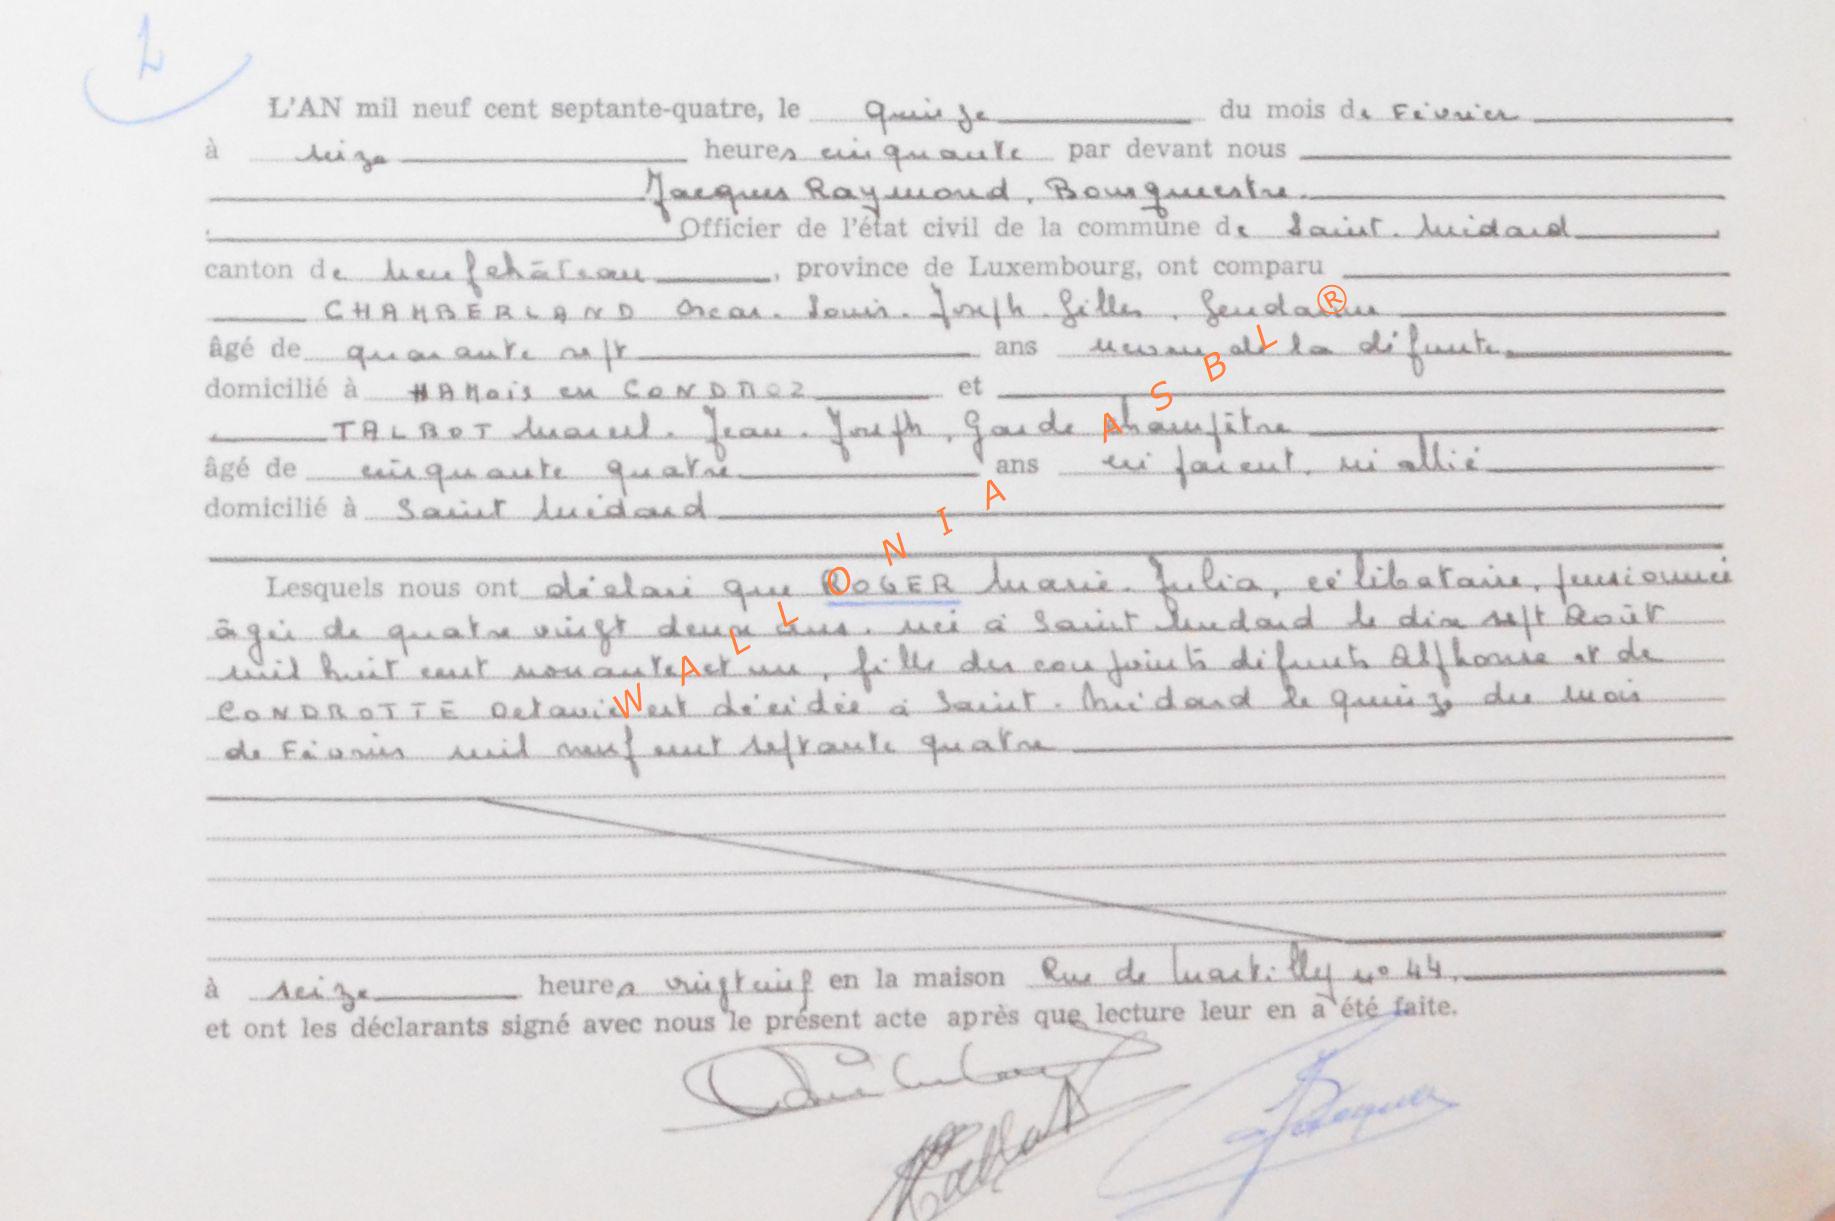 2
L'AN mil neuf cent septante-quatre, le quinze du mois de Février
à seize heures cinquante par devant nous
Jacques Raymond, Bourgmestre.
Officier de l'état civil de la commune de Saint-Médard
canton de Neufchâteau, province de Luxembourg, ont comparu
CHAMBERLAND Oscar-Louis-Joseph-Gilles, Gendarme
âgé de quarante sept ans neveu de la défunte.
domicilié à HAMois en CONDROZ et
TALBOT Marcel-Jean-Joseph, Garde Champêtre
âgé de cinquante quatre ans ni parent, ni allié
domicilié à Saint Médard
Lesquels nous ont déclaré que ROGER Marie-Julia, célibataire, pensionnée
âgée de quatre vingt deux ans, née à Saint Médard le dix sept Août
mil huit cent nonante et un, fille des conjoints défunts Alphonse et de
CONDROTTE Octavie est décédée à Saint-Médard le quinze du mois
de Février mil neuf cent septante quatre
à seize heures vingt neuf en la maison Rue de Martilly no 44.
et ont les déclarants signé avec nous le présent acte après que lecture leur en a été faite.
WALLONIA ASBL®